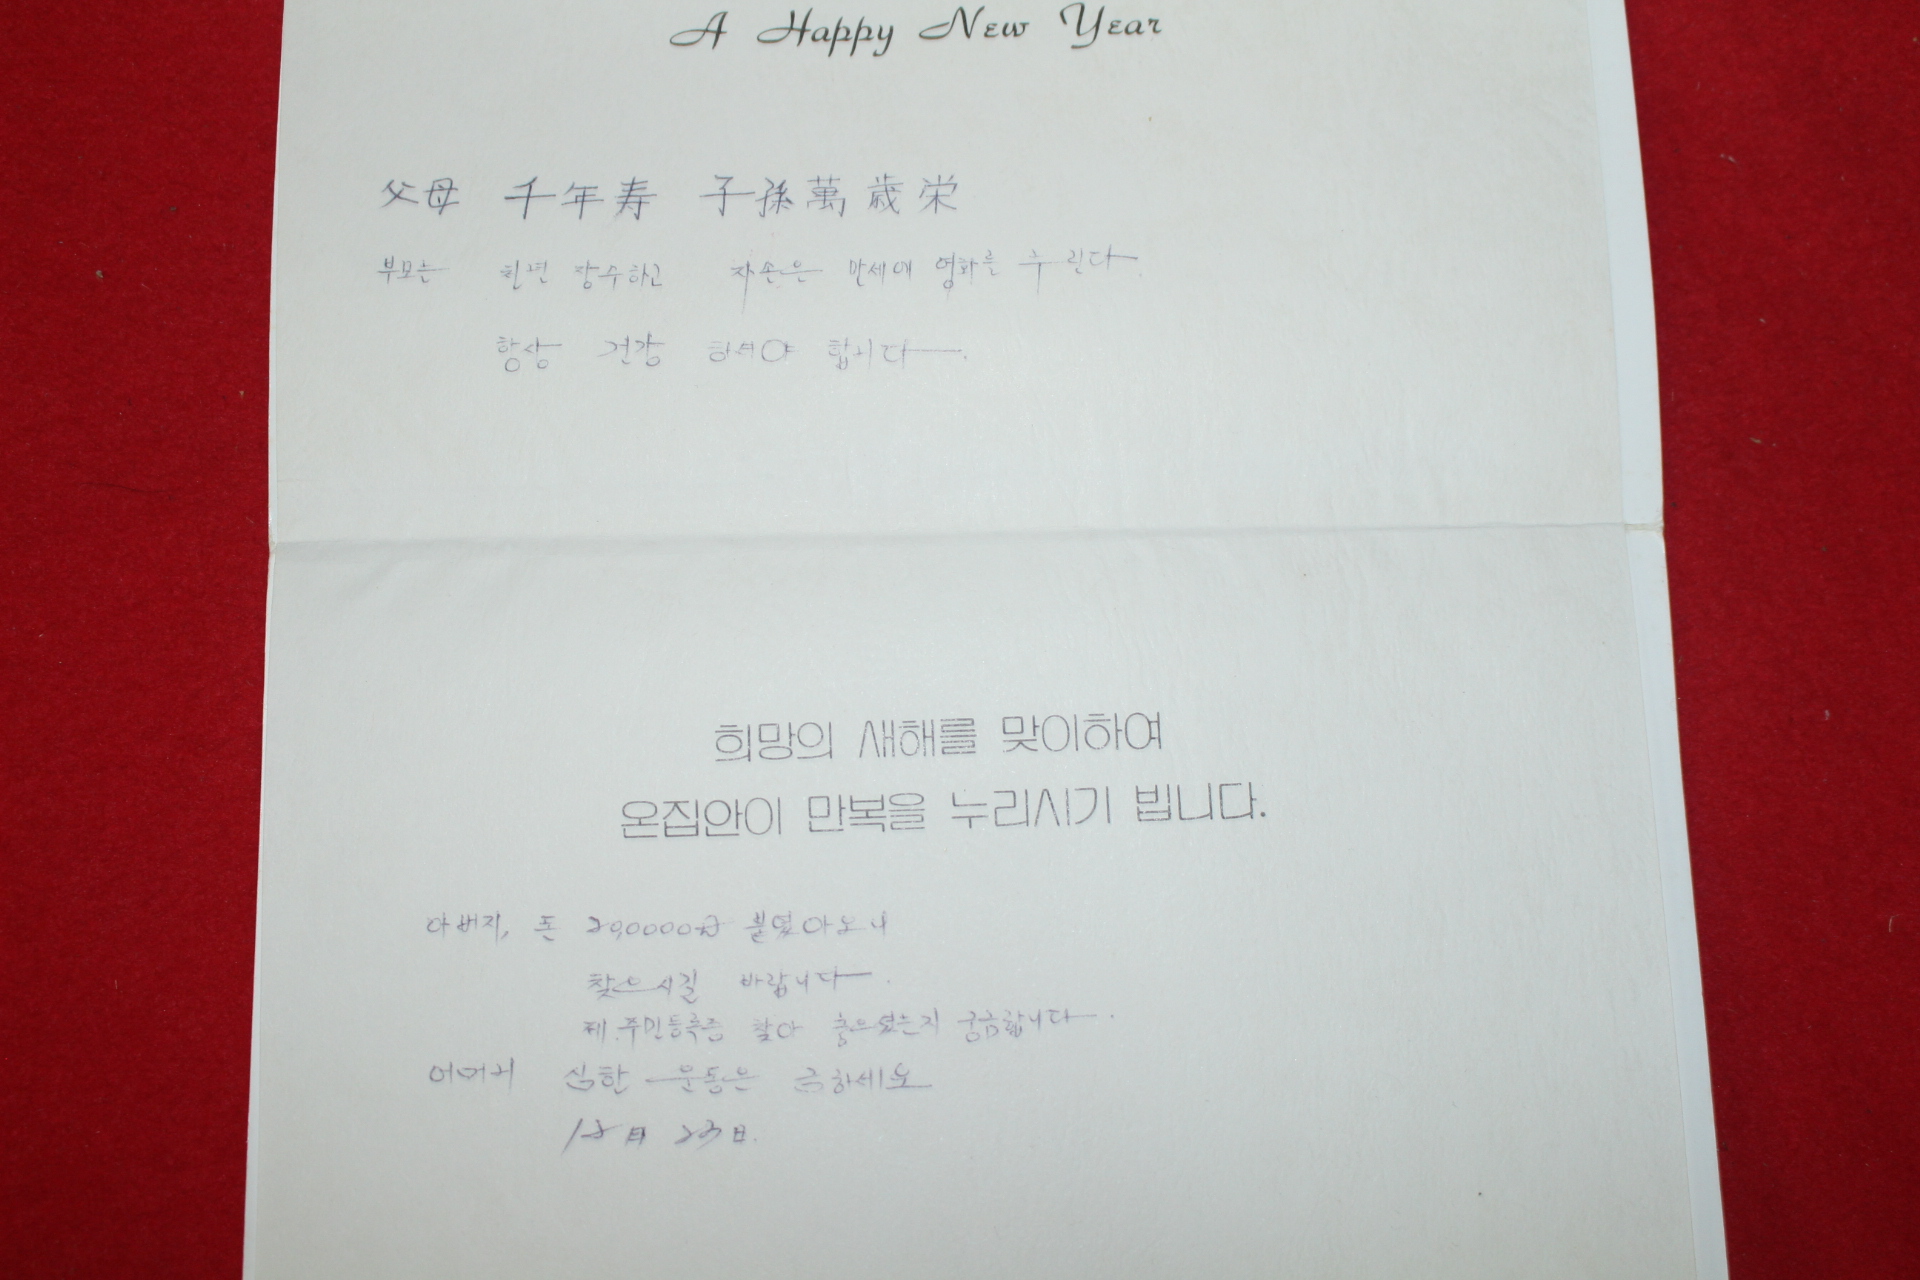 A Happy New Year
父母 千年寿 子孫萬歲栄
부모는 천년 장수하고 자손은 만세에 영화를 누린다
항상 건강 하셔야 합니다.
희망의 새해를 맞이하여
온집안이 만복을 누리시기 빕니다.
아버지, 돈 20,0000 붙였아오니
찾으시길 바랍니다.
제 주민등록증 찾아 궁금합니다.
어머니 심한 운동은 금하세요
12月 23日.